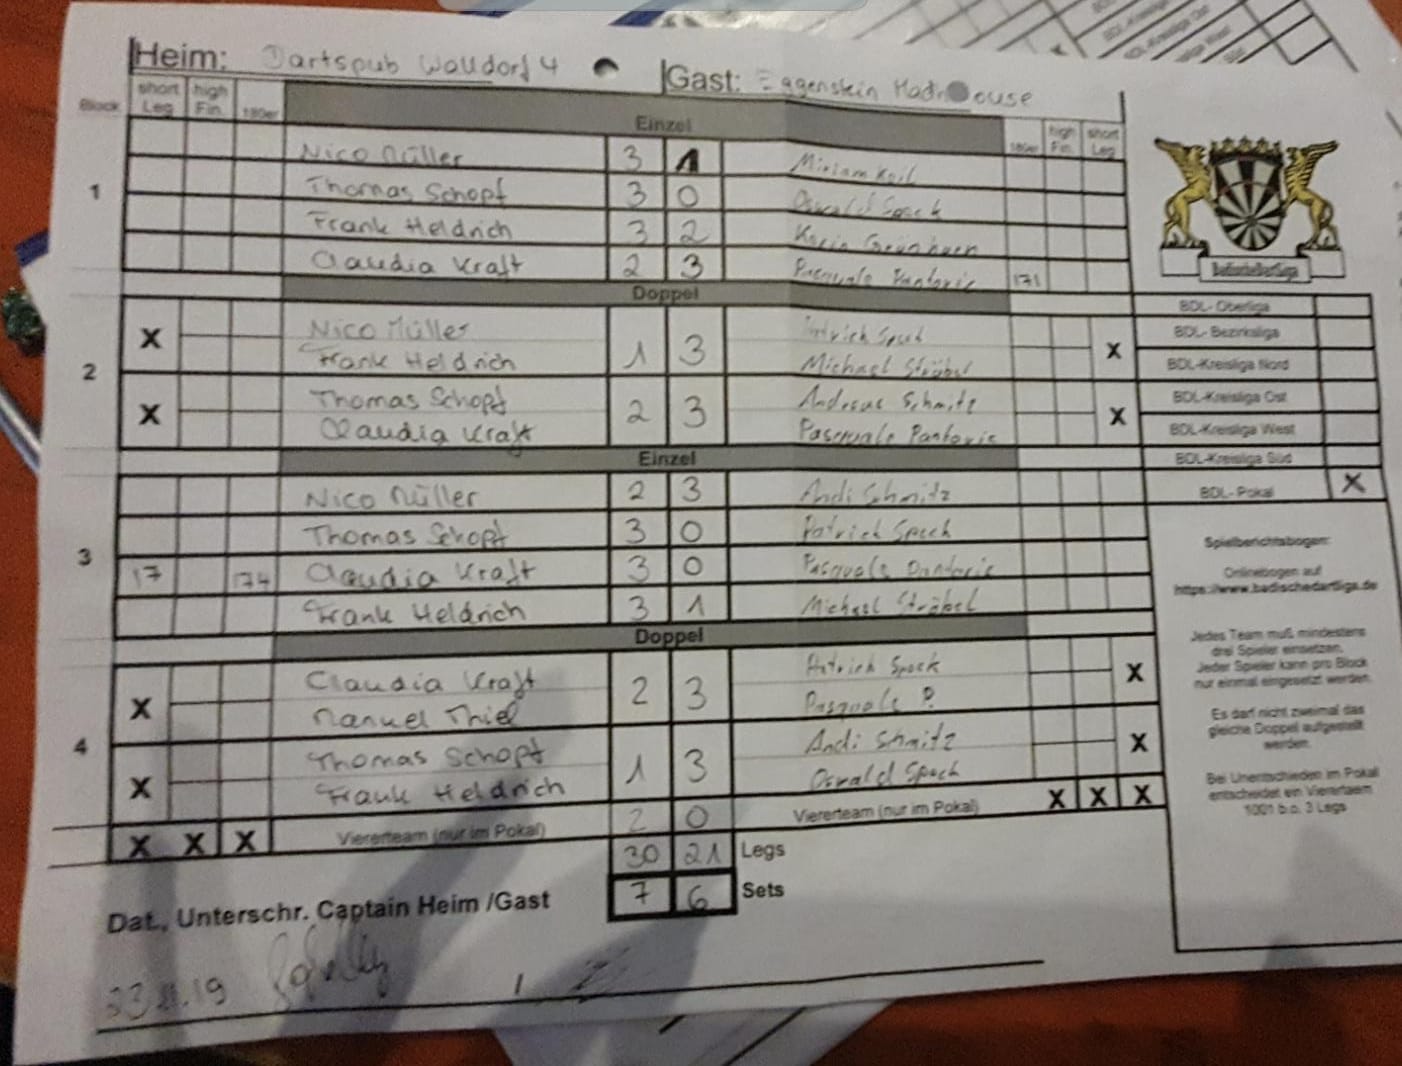 Heim: Dartspub Walldorf 4 Gast: Eggenstein Madhouse
Block short Leg high Fin. 180er Einzel 180er high Fin. short Leg
1
Nico Müller 3 1 Miriam Keil
Thomas Schopf 3 0 Oswald Speck
Frank Heldrich 3 2 Karin
Claudia Kraft 2 3 Pasquale Pantoric 171
Doppel
2
X Nico Müller 1 3 Patrick Speck X
Frank Heldrich Michael Ströbel
X Thomas Schopf 2 3 Andreas Schmitz X
Claudia Kraft Pasquale Pantoric
Einzel
3
Nico Müller 2 3 Andi Schmitz
Thomas Schopf 3 0 Patrick Speck
17 174 Claudia Kraft 3 0 Pasquale Pantoric
Frank Heldrich 3 1 Michael Ströbel
Doppel
4
X Claudia Kraft 2 3 Patrick Speck X
Manuel Thiel Pasquale P.
X Thomas Schopf 1 3 Andi Schmitz X
Frank Heldrich Oswald Speck
X X X Viererteam (nur im Pokal) 2 0 Viererteam (nur im Pokal) X X X
30 21 Legs
7 6 Sets
Dat., Unterschr. Captain Heim /Gast
23.11.19 /
BadischeDartliga
BDL- Oberliga
BDL- Bezirksliga
BDL-Kreisliga Nord
BDL-Kreisliga Ost
BDL-Kreisliga West
BDL-Kreisliga Süd
BDL- Pokal X
Spielberichtsbogen:
Onlinebogen auf
https://www.badischedartliga.de
Jedes Team muß mindestens
drei Spieler einsetzen.
Jeder Spieler kann pro Block
nur einmal eingesetzt werden.
Es darf nicht zweimal das
gleiche Doppel aufgestellt
werden.
Bei Unentschieden im Pokal
entscheidet ein Viererteam
1001 b.o. 3 Legs